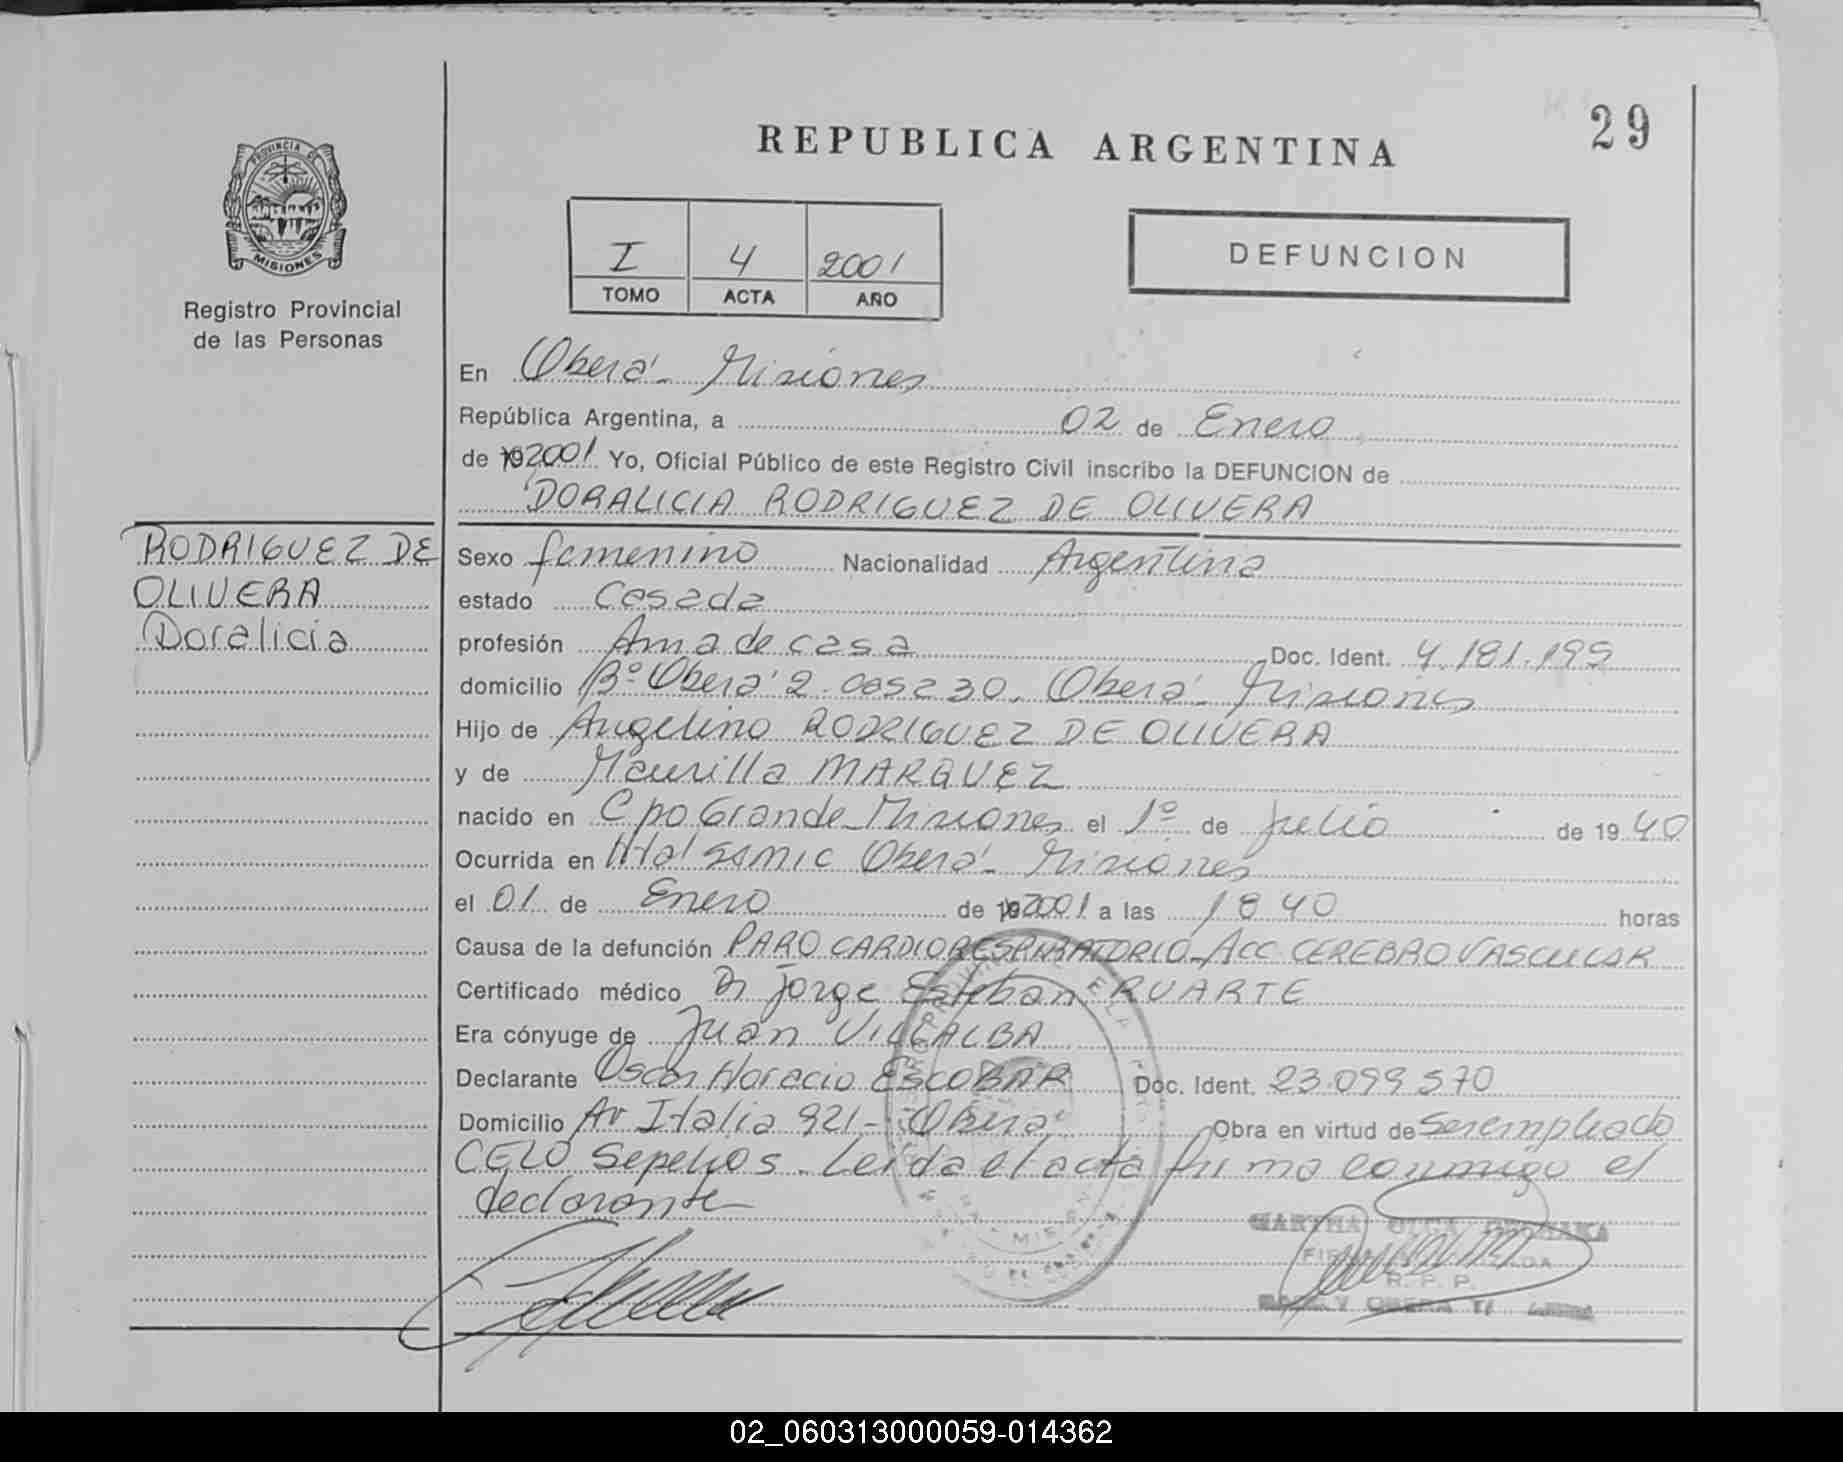 29
REPUBLICA ARGENTINA
PROVINCIA DE
MISIONES
Registro Provincial
de las Personas
I 4 2001
TOMO ACTA AÑO
DEFUNCION
En Oberá - Misiones
República Argentina, a 02 de Enero
de 192001 Yo, Oficial Público de este Registro Civil inscribo la DEFUNCION de
DORALICIA RODRIGUEZ DE OLIVERA
RODRIGUEZ DE
OLIVERA
Doralicia
Sexo femenino Nacionalidad Argentina
estado Casada
profesión Ama de casa Doc. Ident. 4.181.199
domicilio Bº Oberá 2 casa 30. Oberá - Misiones
Hijo de Angelino RODRIGUEZ DE OLIVERA
y de Maurilla MARQUEZ
nacido en Cpo Grande - Misiones el 1º de julio de 1940
Ocurrida en Htal SAMIC Oberá - Misiones
el 01 de Enero de 192001 a las 18 40 horas
Causa de la defunción PARO CARDIORESPIRATORIO - ACC. CEREBRO VASCULAR
Certificado médico Dr Jorge Esteban ERUARTE
Era cónyuge de Juan VILLALBA
Declarante Oscar Horacio ESCOBAR Doc. Ident. 23.099.570
Domicilio Av Italia 921 - Oberá Obra en virtud de ser empleado
CELO Sepelios - Leída el acta firma conmigo el
declarante
R. P. P.
02_060313000059-014362